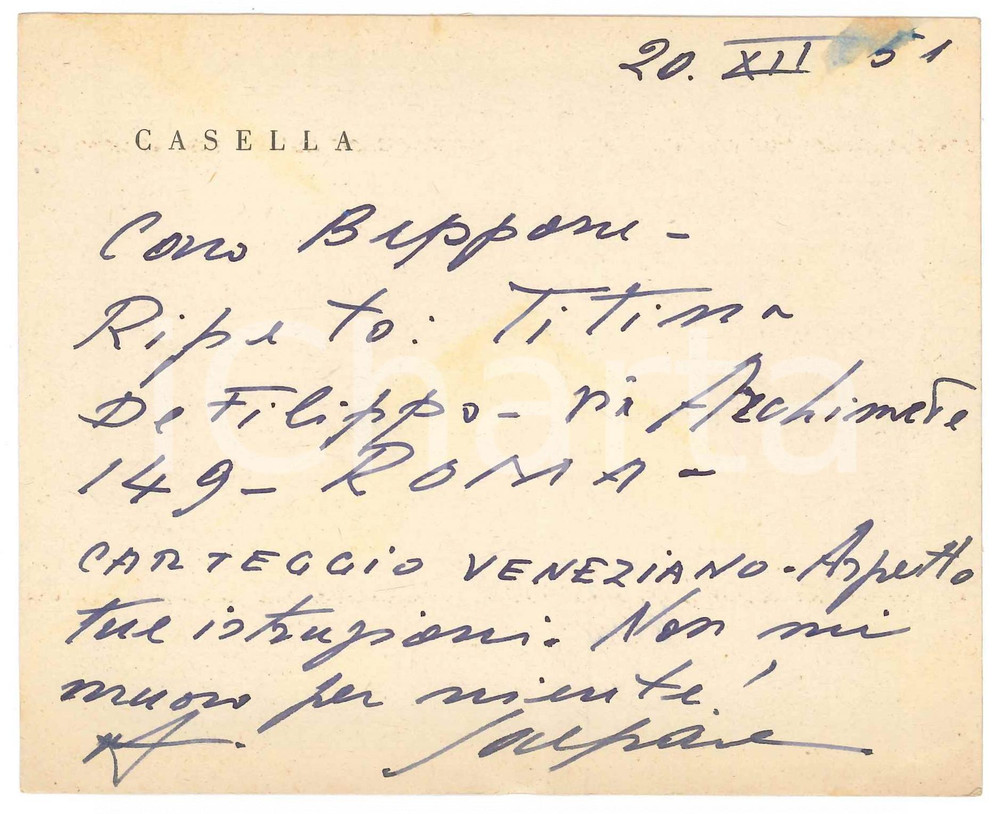 20. XII 51
CASELLA
Caro Beppone -
Ripeto: Titina
De Filippo - via Archimede
149 - ROMA -
CARTEGGIO VENEZIANO - Aspetto
tue istruzioni. Non mi
muovo per niente!
Gaspare
iCharta